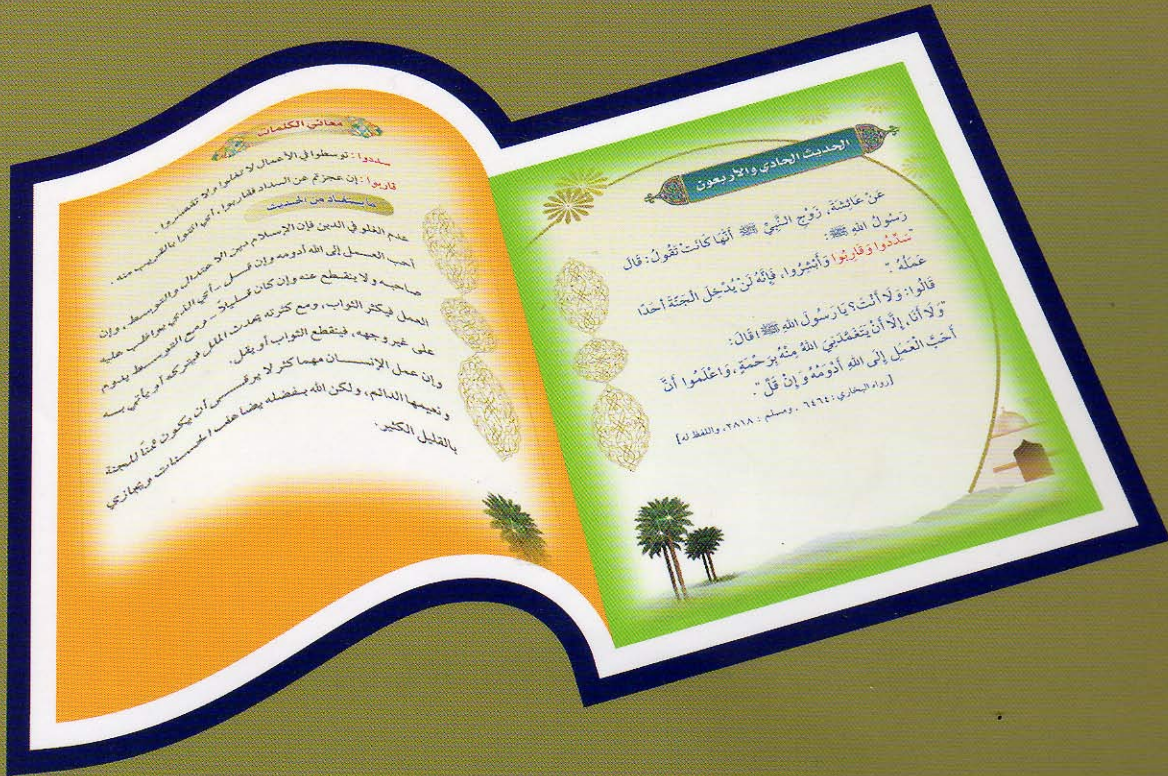 الحديث الحادي والأربعون
عَنْ عَائِشَةَ، زَوْجِ النَّبِيِّ ﷺ أَنَّهَا كَانَتْ تَقُولُ: قَالَ
رَسُولُ اللهِ ﷺ:
"سَدِّدُوا وَقَارِبُوا وَأَبْشِرُوا، فَإِنَّهُ لَنْ يُدْخِلَ الْجَنَّةَ أَحَدًا
عَمَلُهُ".
قَالُوا: وَلَا أَنْتَ؟ يَا رَسُولَ اللهِ ﷺ! قَالَ:
"وَلَا أَنَا، إِلَّا أَنْ يَتَغَمَّدَنِيَ اللهُ مِنْهُ بِرَحْمَةٍ، وَاعْلَمُوا أَنَّ
أَحَبَّ الْعَمَلِ إِلَى اللهِ أَدْوَمُهُ وَإِنْ قَلَّ".
[رواه البخاري: ٦٤٦٤، ومسلم: ٢٨١٨، واللفظ له]
معاني الكلمات
سددوا: توسطوا في الأعمال لا تغلوا ولا تقصروا.
قاربوا: إن عجزتم عن السداد فقاربوا، أي اتوا بالقريب منه.
ما يستفاد من الحديث
عدم الغلو في الدين فإن الإسلام دين الاعتدال والتوسط، وإن
أحب العمل إلى الله أدومه وإن قل - أي الذي يواظب عليه
صاحبه ولا ينقطع عنه وإن كان قليلاً - ومع التوسط يدوم
العمل فيكثر الثواب، ومع كثرته يحدث الملل فيتركه أو يأتي به
على غير وجهه، فينقطع الثواب أو يقل.
وإن عمل الإنسان مهما كثر لا يرقى أن يكون ثمناً للجنة
ونعيمها الدائم، ولكن الله بفضله يضاعف الحسنات ويجازي
بالقليل الكثير.